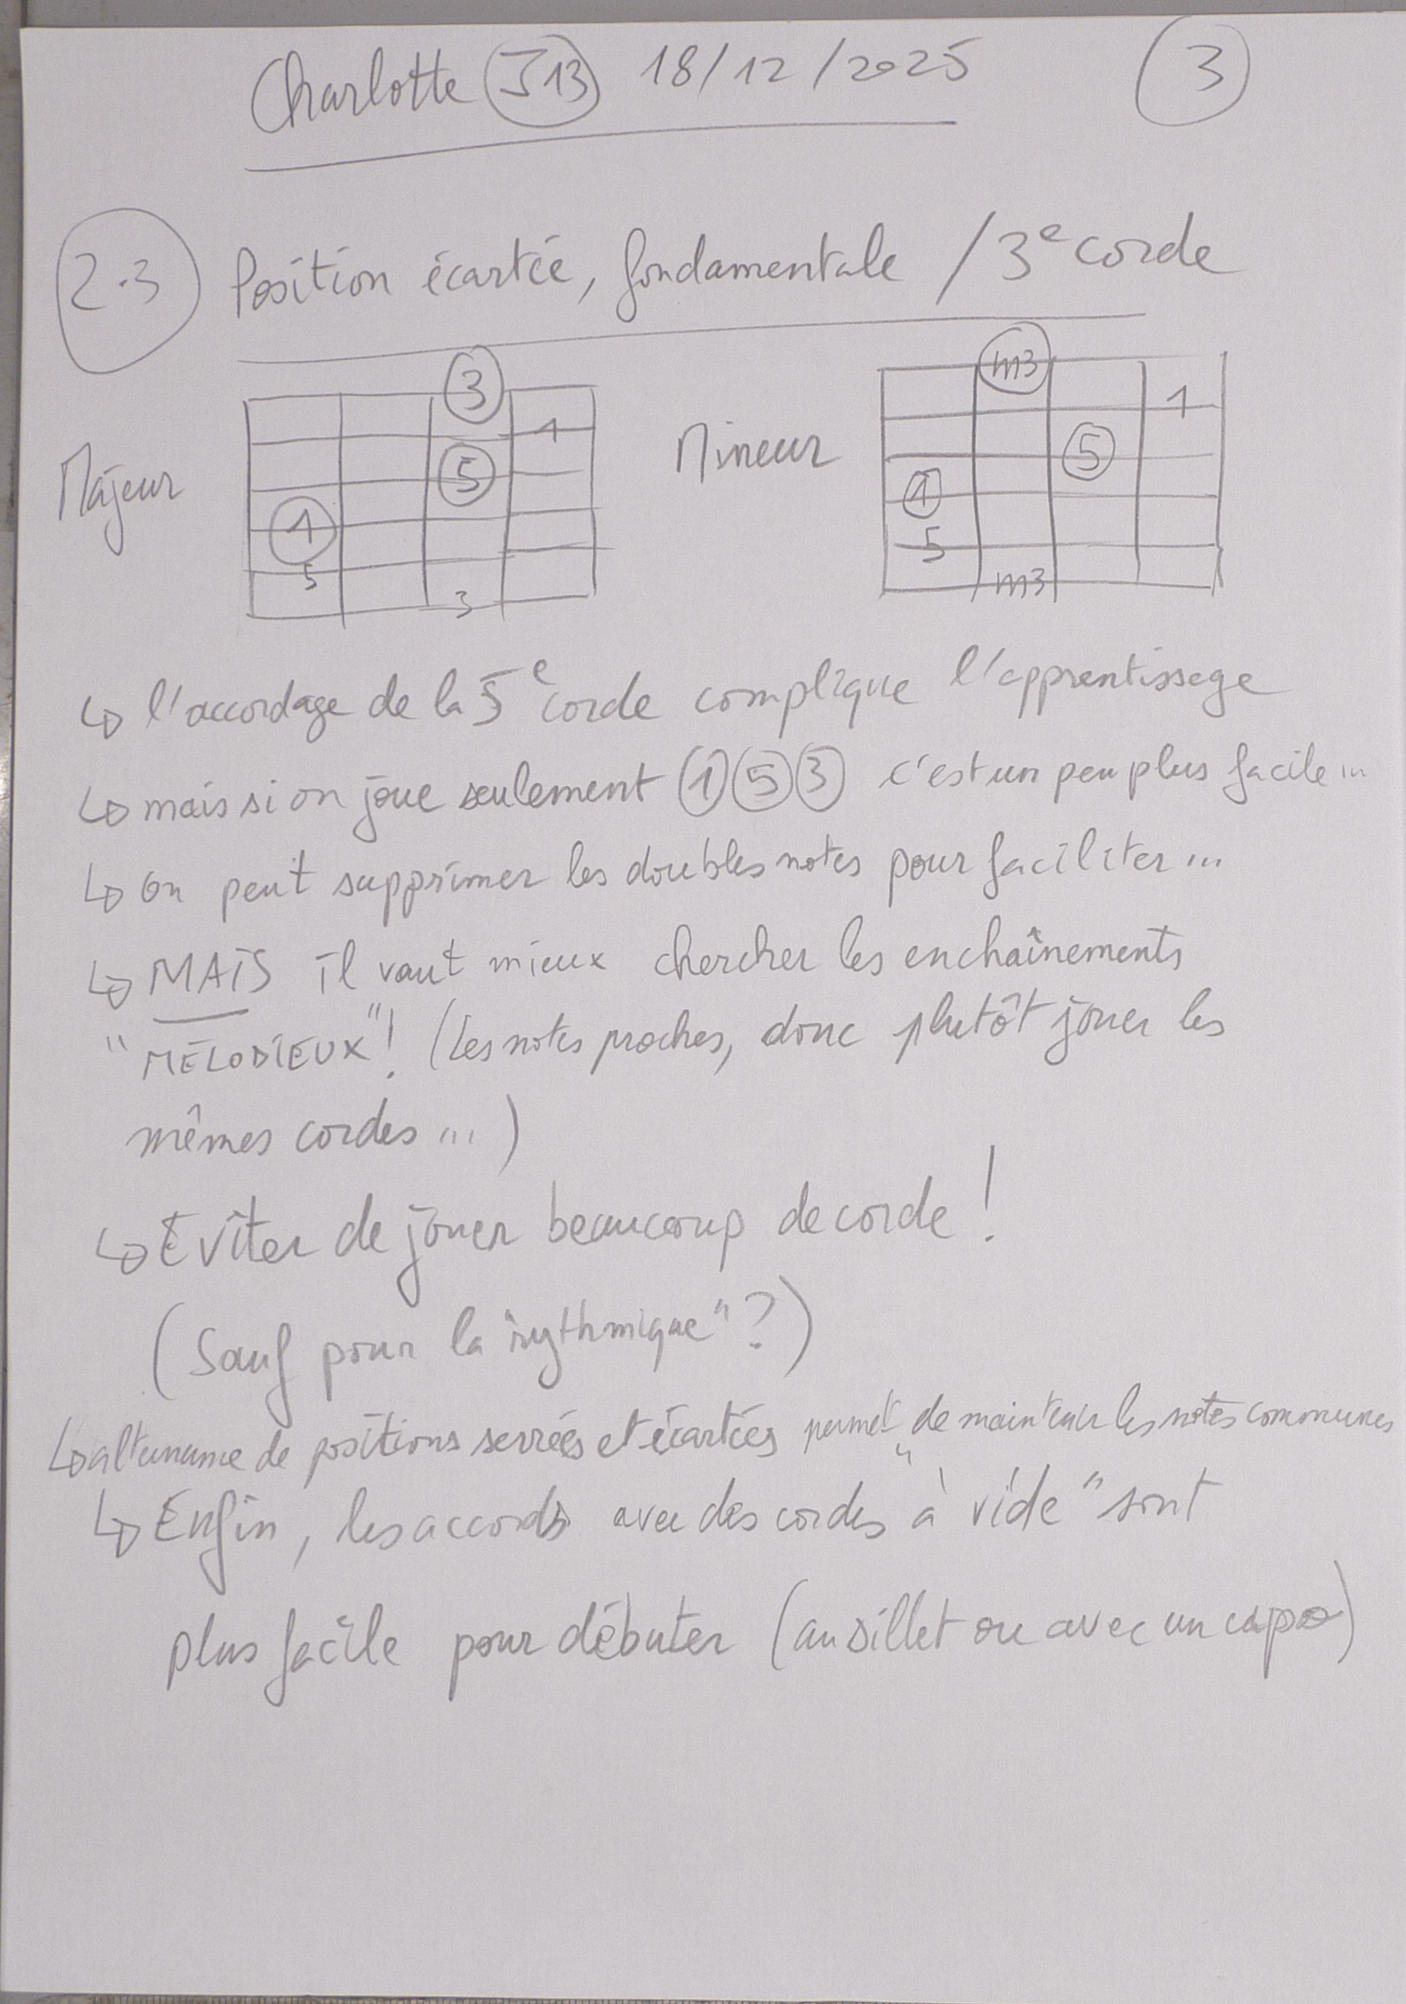 Charlotte J13 18/12/2025 3
2.3 Position écartée, fondamentale / 3e corde
Majeur 3 1 5 1 5 3
Mineur m3 1 5 1 5 m3
↳ l'accordage de la 5e corde complique l'apprentissage
↳ mais si on joue seulement 1 5 3 c'est un peu plus facile...
↳ on peut supprimer les doubles notes pour faciliter...
↳ MAIS il vaut mieux chercher les enchaînements
"MÉLODIEUX"! (les notes proches, donc plutôt jouer les
mêmes cordes...)
↳ Eviter de jouer beaucoup de corde !
(Sauf pour la "rythmique" ?)
↳ alternance de positions serrées et écartées permet de maintenir les notes communes
↳ Enfin, les accords avec des cordes "à vide" sont
plus facile pour débuter (au sillet ou avec un capo)